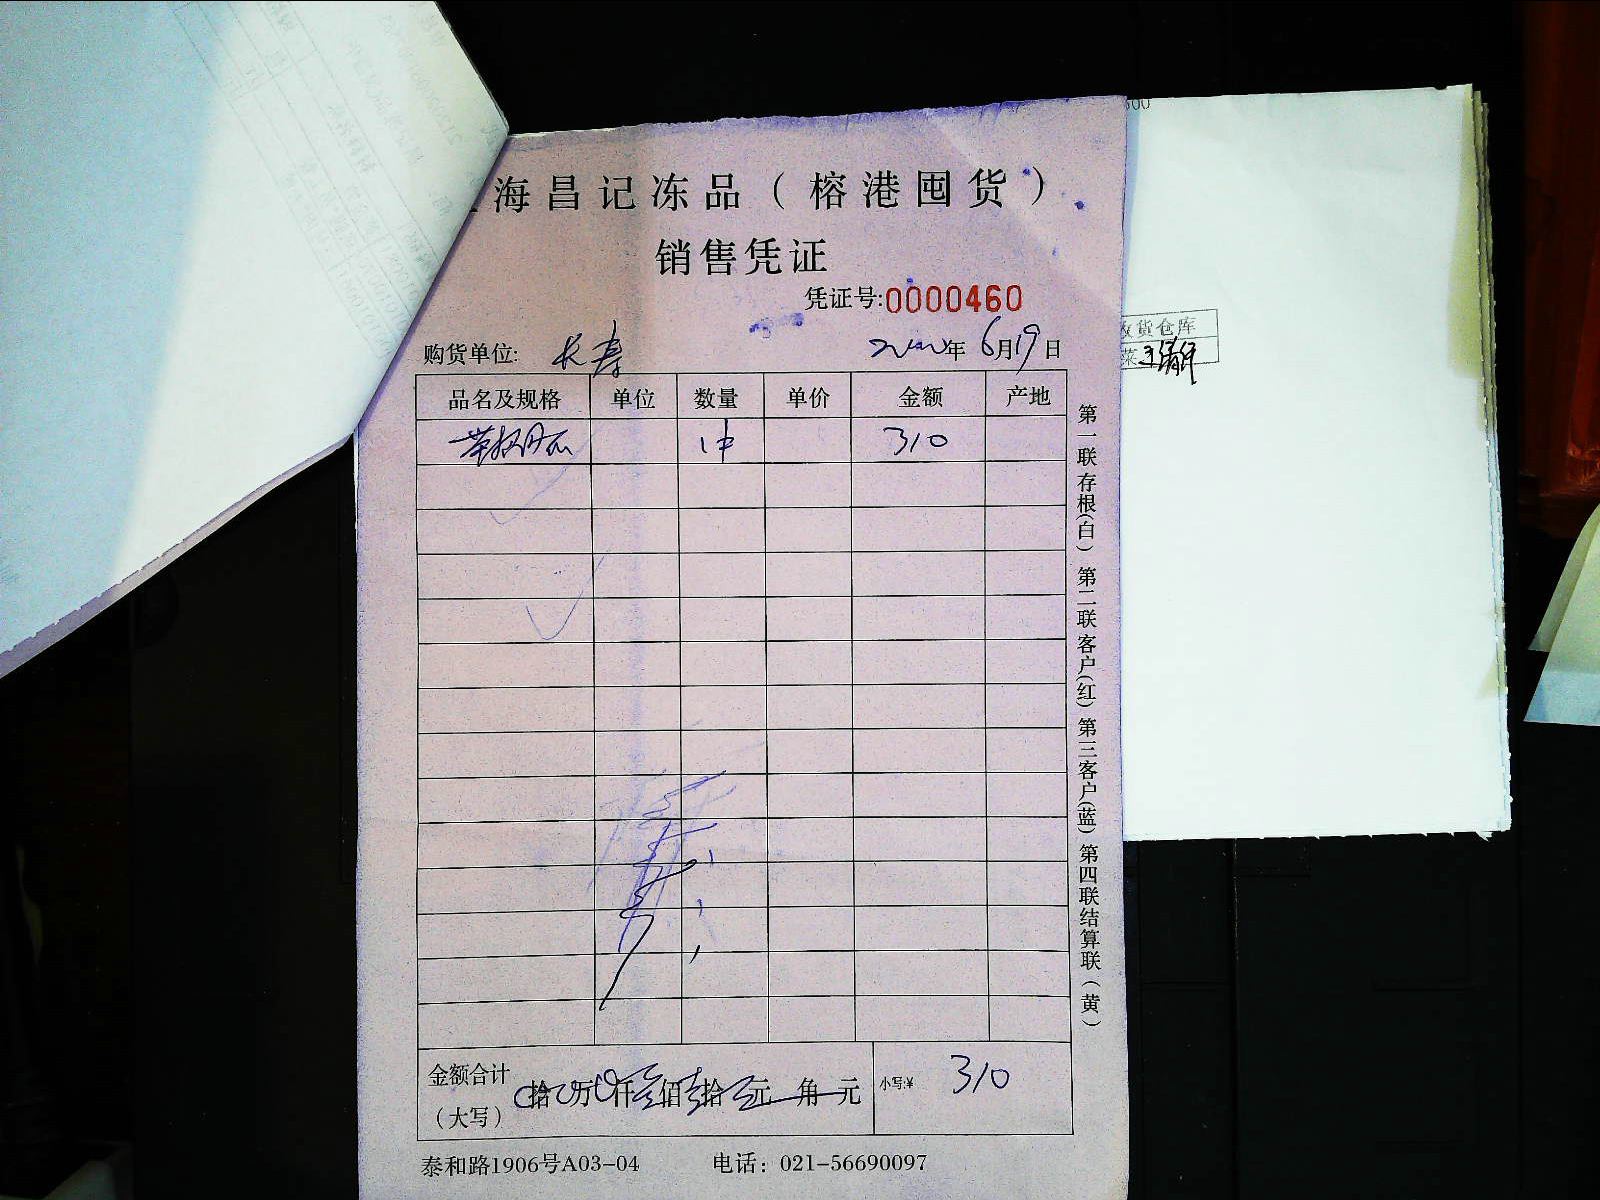 海昌记冻品（榕港囤货）
销售凭证
凭证号:0000460
购货单位: 长寿 年 6月19日
品名及规格 单位 数量 单价 金额 产地
1件 310
金额合计（大写） 拾 万 仟 佰 拾 元 角 元 小写:¥ 310
泰和路1906号A03-04 电话：021-56690097
第一联存根(白) 第二联客户(红) 第三客户(蓝) 第四联结算联(黄)
货仓库